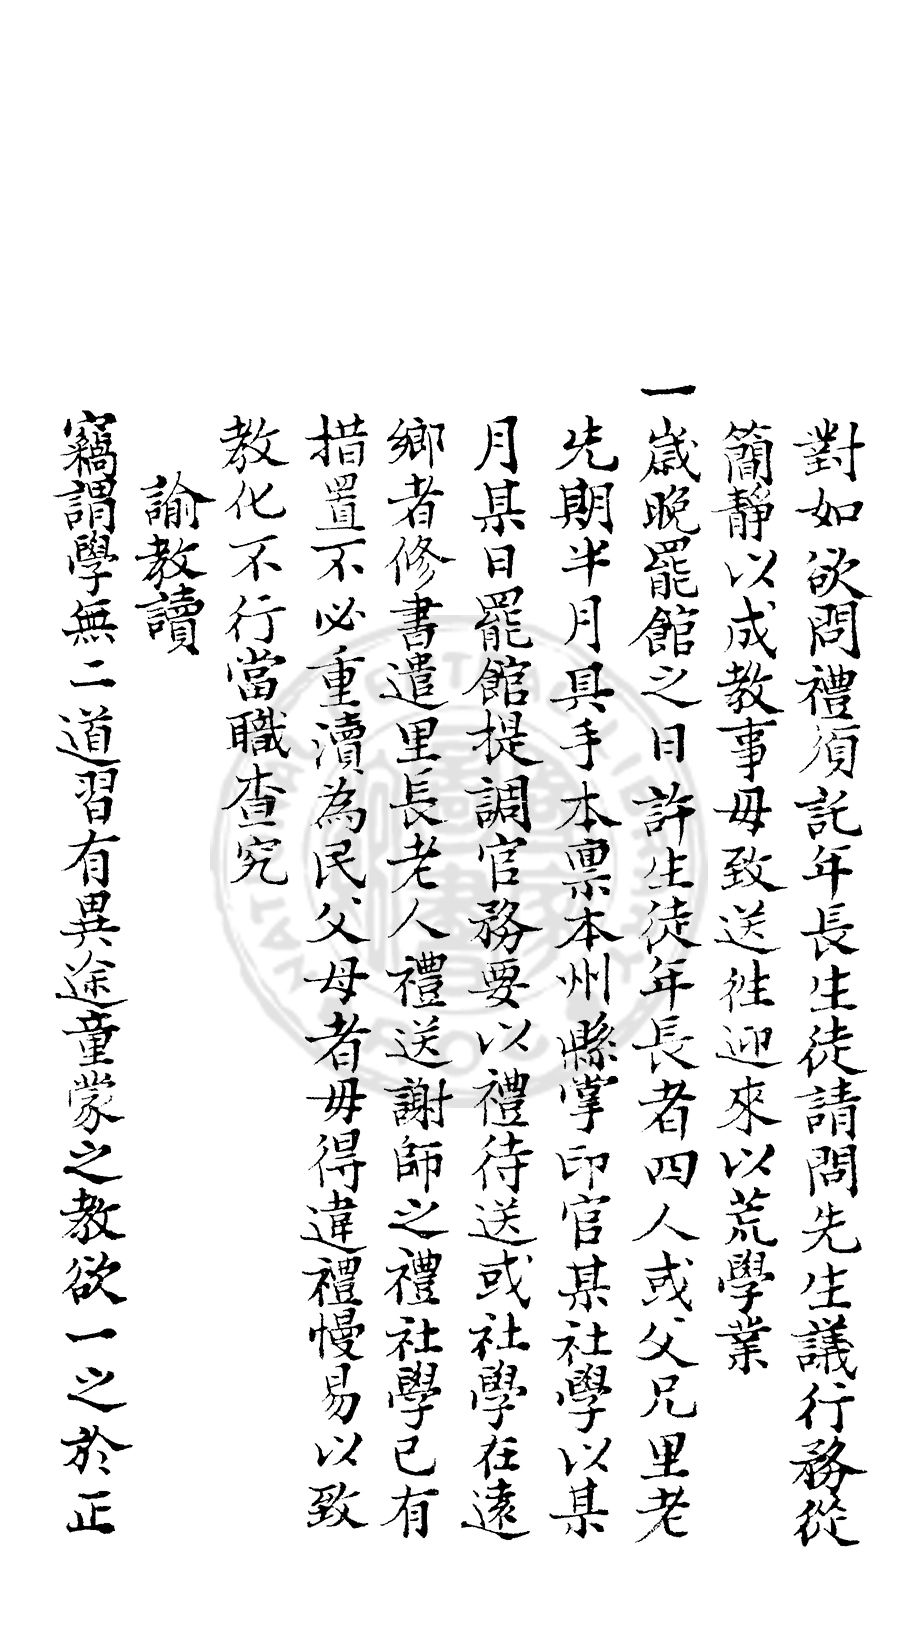 對如欲問禮須託年長生徒請問先生議行務從
簡靜以成教事毋致送往迎來以荒學業
一歲晚罷館之日許生徒年長者四人或父兄里老
先期半月具手本稟本州縣掌印官某社學以某
月某日罷館提調官務要以禮待送或社學在遠
鄉者修書遣里長老人禮送謝師之禮社學已有
措置不必重瀆為民父母者毋得違禮慢易以致
教化不行當職查究
諭教讀
竊謂學無二道習有異途童蒙之教欲一之於正